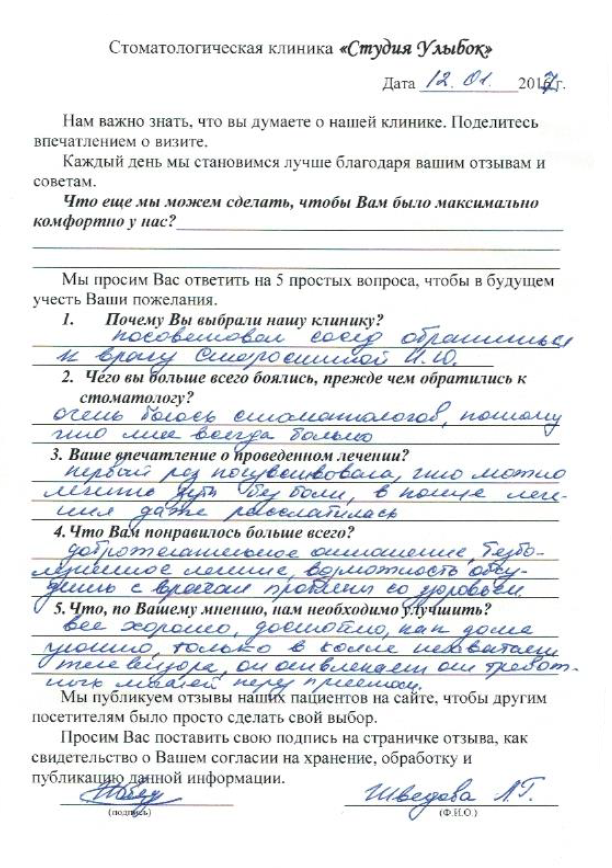 Стоматологическая клиника «Студия Улыбок»
Дата 12.01. 2017г.
Нам важно знать, что вы думаете о нашей клинике. Поделитесь
впечатлением о визите.
Каждый день мы становимся лучше благодаря вашим отзывам и
советам.
Что еще мы можем сделать, чтобы Вам было максимально
комфортно у нас?
Мы просим Вас ответить на 5 простых вопроса, чтобы в будущем
учесть Ваши пожелания.
1. Почему Вы выбрали нашу клинику?
посоветовал сосед обратиться
к врачу Старостиной И.Ю.
2. Чего вы больше всего боялись, прежде чем обратились к
стоматологу?
очень боюсь стоматологов, потому
что мне всегда больно
3. Ваше впечатление о проведенном лечении?
первый раз почувствовала, что можно
лечить зубы без боли, в конце лече-
ния даже расслабилась
4. Что Вам понравилось больше всего?
доброжелательное отношение, безбо-
лезненное лечение, возможность обсу-
дить с врачом проблемы со здоровьем.
5. Что, по Вашему мнению, нам необходимо улучшить?
все хорошо, достойно, как дома
уютно, только в холле не хватает
телевизора, он отвлекает от тревож-
ных мыслей перед приемом.
Мы публикуем отзывы наших пациентов на сайте, чтобы другим
посетителям было просто сделать свой выбор.
Просим Вас поставить свою подпись на страничке отзыва, как
свидетельство о Вашем согласии на хранение, обработку и
публикацию данной информации.
Шведова Л.Г.
(подпись) (Ф.И.О.)